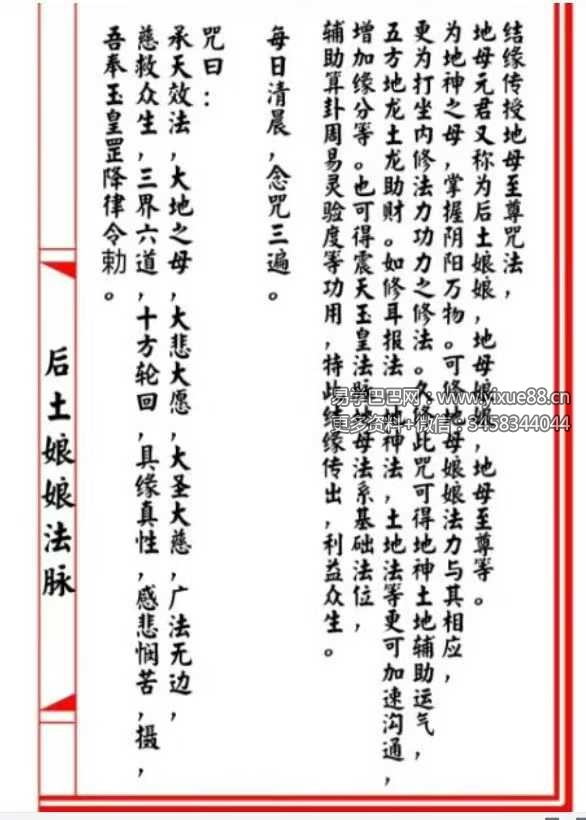 结缘传授地母至尊咒法，
地母元君又称为后土娘娘，地母娘娘，地母至尊等。
为地神之母，掌握阴阳万物。可修地母娘娘法力与其相应，
更为打坐内修法力功力之修法。久修此咒可得地神土地辅助运气，
五方地龙土龙助财。如修耳报法，地神法，土地法等更可加速沟通，
增加缘分等。也可得震天玉皇法脉地母法系基础法位，
辅助算卦周易灵验度等功用，特此结缘传出，利益众生。
每日清晨，念咒三遍。
咒曰：
承天效法，大地之母，大悲大愿，大圣大慈，广法无边，
慈救众生，三界六道，十方轮回，具缘真性，感悲悯苦，摄，
吾奉玉皇罡降律令勅。
后土娘娘法脉
易学巴巴网：www.yixue88.cn
更多资料+微信：3458344044